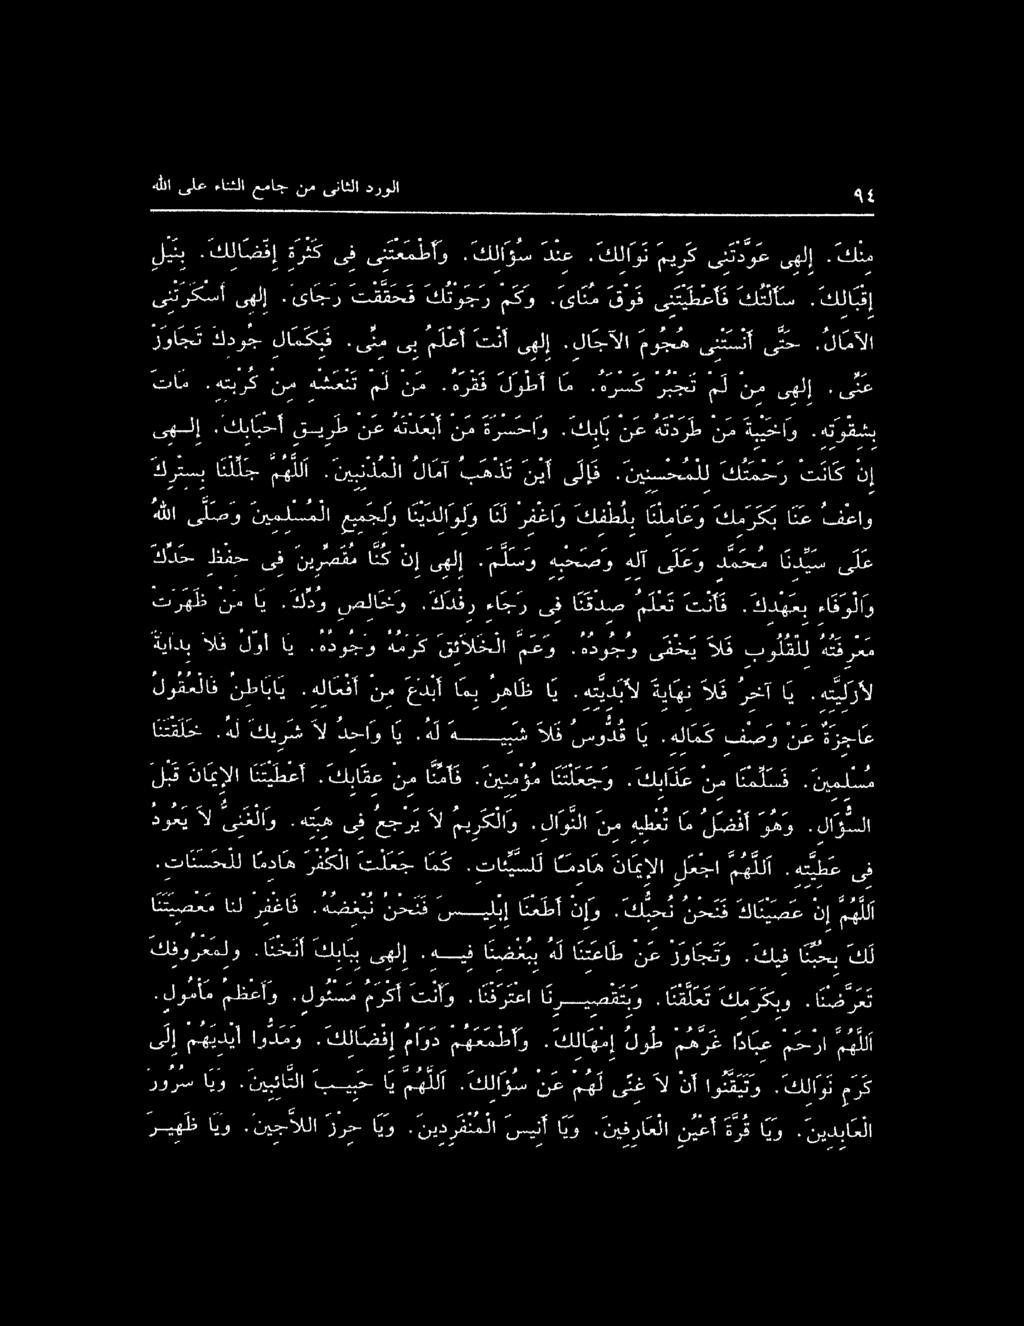 ٩٤ الورد الثانى من جامع الثناء على الله
مِنْكَ. إِلهِى عَوَّدْتَنِى كَرِيمَ نَوَالِكَ. عِنْدَ سُؤَالِكَ. وَأَطْمَعْتَنِى فِى كَثْرَةِ إِفْضَالِكَ. بِنَيْلِ
إِقْبَالِكَ. سَأَلْتُكَ فَأَعْطَيْتَنِى فَوْقَ مُنَاىَ. وَكَمْ رَجَوْتُكَ فَحَقَّقْتَ رَجَاىَ. إِلهِى أَسْكَرَتْنِى
الآمَالُ. حَتَّى أَنْسَتْنِى هُجُومَ الآجَالِ. إِلهِى أَنْتَ أَعْلَمُ بِى مِنِّى. فَبِكَمَالِ جُودِكَ تَجَاوَزْ
عَنِّى. إِلهِى مِنْ لَمْ تَجْبُرْ كَسْرَهُ. مَا أَطْوَلَ فَقْرَهُ. مَنْ لَمْ تَنْعَشْهِ مِنْ كُرْبَتِهِ. مَاتَ
بِشِقْوَتِهِ. وَاخَيْبَةَ مَنْ طَرَدْتَهُ عَنْ بَابِكَ. وَاحَسْرَةَ مَنْ أَبْعَدْتَهُ عَنْ طَرِيـقِ أَحْبَابِكَ. إِلـهِى
إِنْ كَانَتْ رَحْمَتُكَ لِلْمُحْسِنِينَ. فَإِلَى أَيْنَ تَذْهَبُ آمَالُ الْمُذْنِبِينَ. اَللَّهُمَّ جَلِّلْنَا بِسِتْرِكَ
وَاعْفُ عَنَّا بِكَرَمِكَ وَعَامِلْنَا بِلُطْفِكَ وَاغْفِرْ لَنَا وَلِوَالِدَيْنَا وَلِجَمِيعِ الْمُسْلِمِينَ وَصَلَّى اللهُ
عَلَى سَيِّدِنَا مُحَمَّدٍ وَعَلَى آلِهِ وَصَحْبِهِ وَسَلَّمَ. إِلهِى إِنْ كُنَّا مُقَصِّرِينَ فِى حِفْظِ حَدِّكَ
وَالْوَفَاءِ بِعَهْدِكَ. فَأَنْتَ تَعْلَمُ صِدْقَنَا فِى رَجَاءِ رِفْدِكَ. وَخَالِصِ وُدِّكَ. يَا مَنْ ظَهَرَتْ
مَعْرِفَتُهُ لِلْقُلُوبِ فَلاَ يَخْفَى وُجُودُهُ. وَعَمَّ الْخَلاَئِقَ كَرَمُهُ وَجُودُهُ. يَا أَوَّلُ فَلاَ بِدَايَةَ
لأَزَلِيَّتِهِ. يَا آخِرُ فَلاَ نِهَايَةَ لأَبَدِيَّتِهِ. يَا ظَاهِرُ بِمَا أَبْدَعَ مِنْ أَفْعَالِهِ. يَابَاطِنُ فَالْعُقُولُ
عَاجِزَةٌ عَنْ وَصْفِ كَمَالِهِ. يَا قُدُّوسُ فَلاَ شَبِيـهَ لَهُ. يَا وَاحِدُ لاَ شَرِيكَ لَهُ. خَلَقْتَنَا
مُسْلِمِينَ. فَسَلِّمْنَا مِنْ عَذَابِكَ. وَجَعَلْتَنَا مُؤْمِنِينَ. فَأَمِّنَّا مِنْ عِقَابِكَ. أَعْطَيْتَنَا الإِيمَانَ قَبْلَ
السُّؤَالِ. وَهُوَ أَفْضَلُ مَا تُعْطِيهِ مِنَ النَّوَالِ. وَالْكَرِيمُ لاَ يَرْجِعُ فِى هِبَتِهِ. وَالْغَنِىُّ لاَ يَعُودُ
فِى عَطِيَّتِهِ. اَللَّهُمَّ اجْعَلِ الإِيمَانَ هَادِمًا لِلسَّيِّئَاتِ. كَمَا جَعَلْتَ الْكُفْرَ هَادِمًا لِلْحَسَنَاتِ.
اَللَّهُمَّ إِنْ عَصَيْنَاكَ فَنَحْنُ نُحِبُّكَ. وَإِنْ أَطَعْنَا إِبْلِيـسَ فَنَحْنُ نُبْغِضُهُ. فَاغْفِرْ لَنَا مَعْصِيَتَنَا
لَكَ بِحُبِّنَا فِيكَ. وَتَجَاوَزْ عَنْ طَاعَتِنَا لَهُ بِبُغْضِنَا فِيـهِ. إِلهِى بِبَابِكَ أَنَخْنَا. وَلِمَعْرُوفِكَ
تَعَرَّضْنَا. وَبِكَرَمِكَ تَعَلَّقْنَا. وَبِتَقْصِيـرِنَا اعْتَرَفْنَا. وَأَنْتَ أَكْرَمُ مَسْئُولٍ. وَأَعْظَمُ مَأْمُولٍ.
اَللَّهُمَّ ارْحَمْ عِبَادًا غَرَّهُمْ طُولُ إِمْهَالِكَ. وَأَطْمَعَهُمْ دَوَامُ إِفْضَالِكَ. وَمَدُّوا أَيْدِيَهُمْ إِلَى
كَرَمِ نَوَالِكَ. وَتَيَقَّنُوا أَنْ لاَ غِنًى لَهُمْ عَنْ سُؤَالِكَ. اَللَّهُمَّ يَا حَبِيـبَ التَّائِبِينَ. وَيَا سُرُورَ
الْعَابِدِينَ. وَيَا قُرَّةَ أَعْيُنِ الْعَارِفِينَ. وَيَا أَنِيسَ الْمُنْفَرِدِينَ. وَيَا حِرْزَ اللاَّجِينَ. وَيَا ظَهِيـرَ